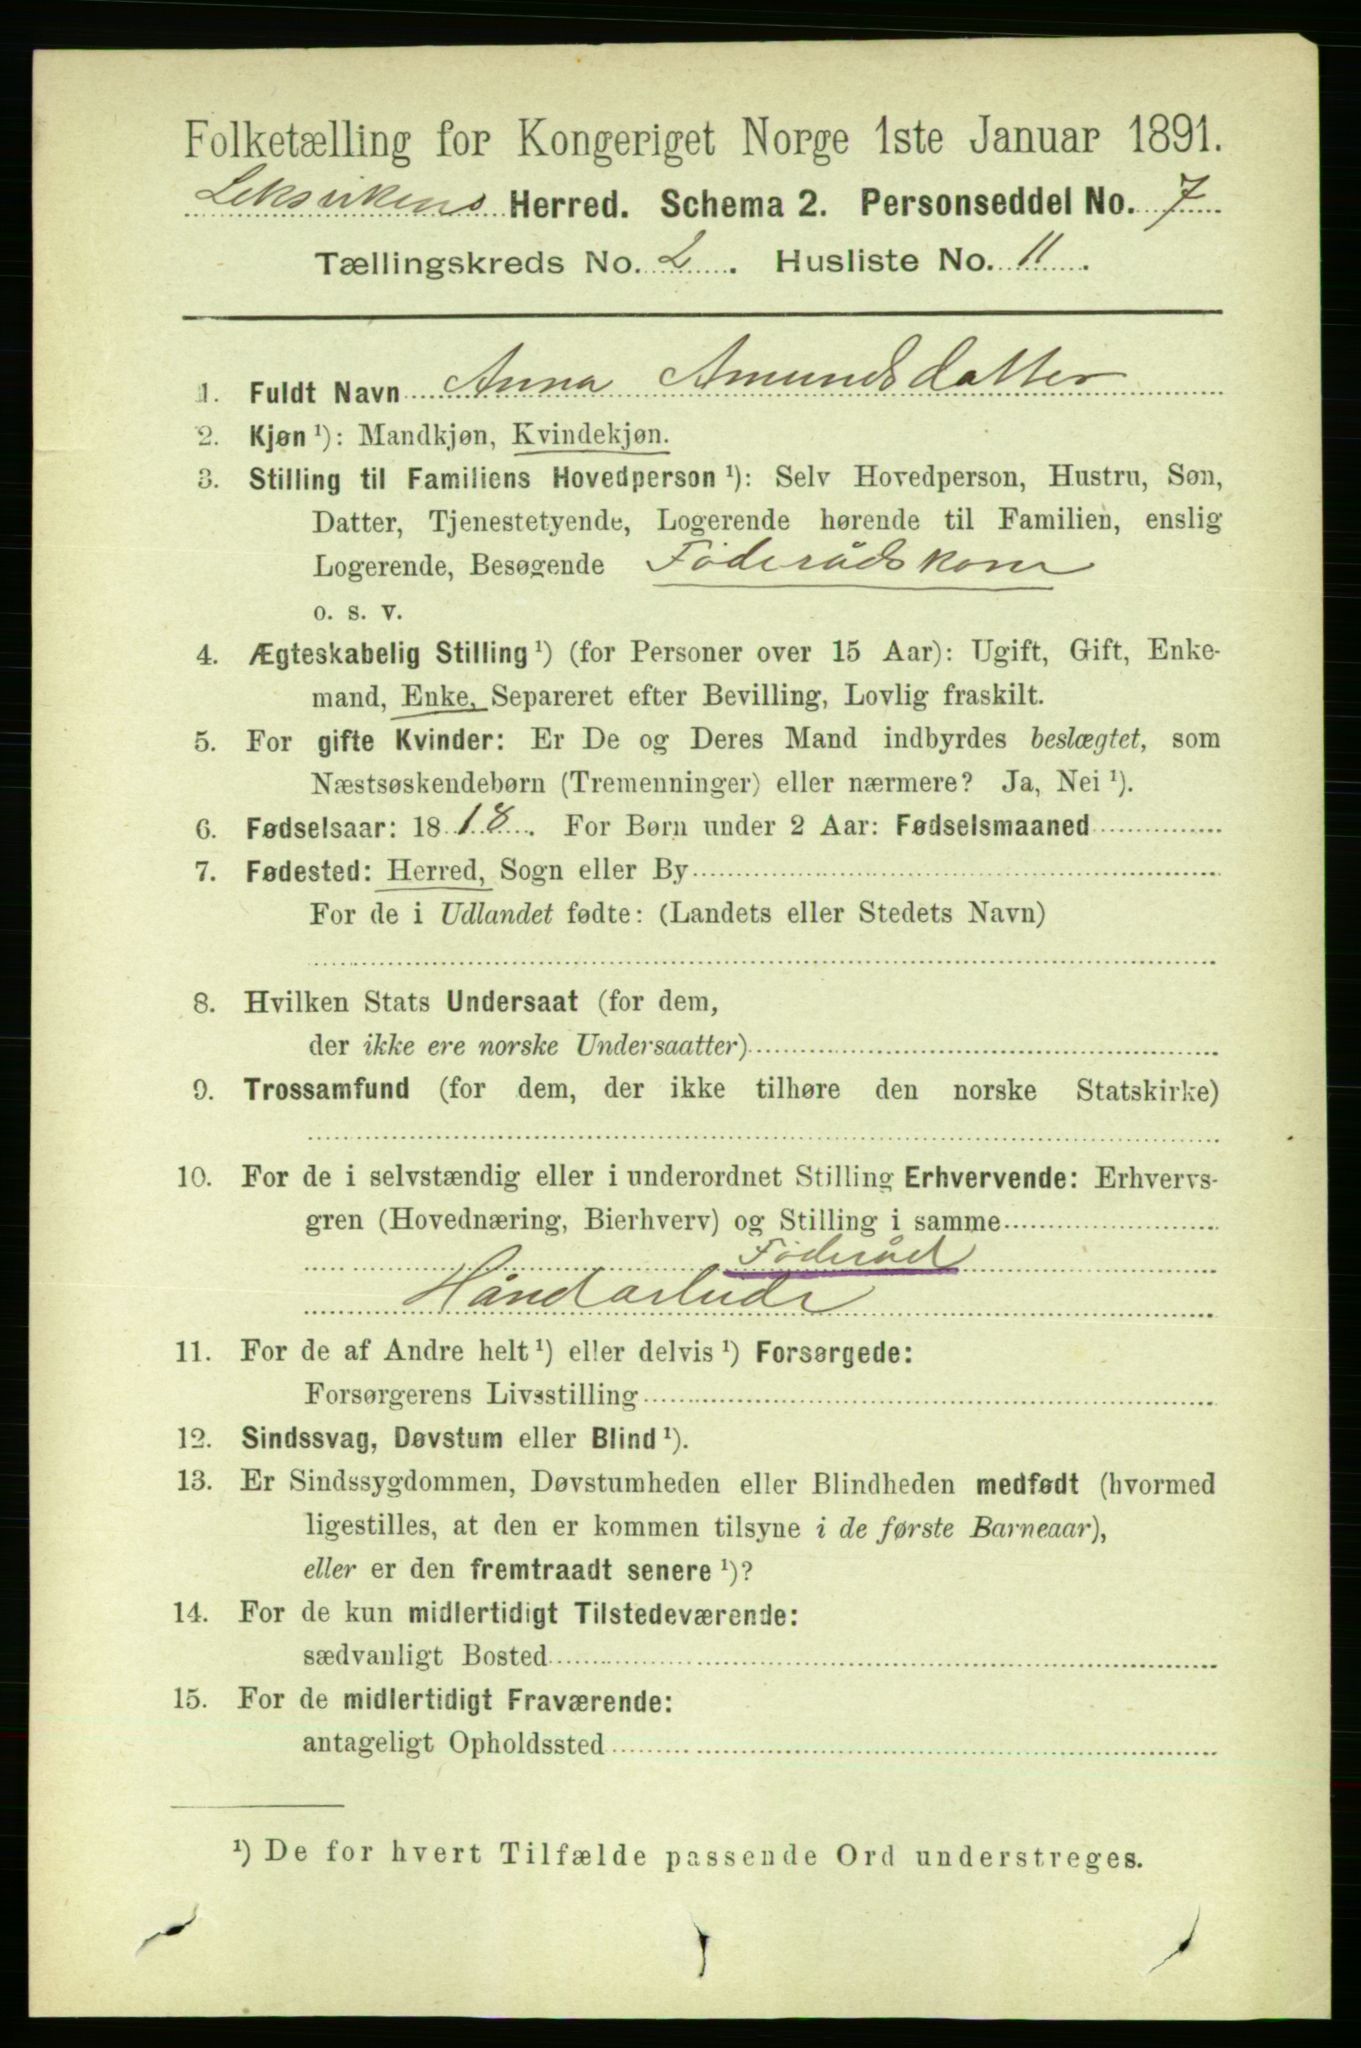 Folketælling for Kongeriget Norge 1ste Januar 1891.
Leksvikens Herred. Schema 2. Personseddel No. 7
Tællingskreds No. 2. Husliste No. 11.
1. Fuldt Navn Anna Amundsdatter
2. Kjøn ¹): Mandkjøn, Kvindekjøn.
3. Stilling til Familiens Hovedperson ¹): Selv Hovedperson, Hustru, Søn,
Datter, Tjenestetyende, Logerende hørende til Familien, enslig
Logerende, Besøgende Föderådskone
o. s. v.
4. Ægteskabelig Stilling ¹) (for Personer over 15 Aar): Ugift, Gift, Enke-
mand, Enke, Separeret efter Bevilling, Lovlig fraskilt.
5. For gifte Kvinder: Er De og Deres Mand indbyrdes beslægtet, som
Næstsøskendebørn (Tremenninger) eller nærmere? Ja, Nei ¹).
6. Fødselsaar: 1818. For Børn under 2 Aar: Fødselsmaaned
7. Fødested: Herred, Sogn eller By
For de i Udlandet fødte: (Landets eller Stedets Navn)
8. Hvilken Stats Undersaat (for dem,
der ikke ere norske Undersaatter)
9. Trossamfund (for dem, der ikke tilhøre den norske Statskirke)
10. For de i selvstændig eller i underordnet Stilling Erhvervende: Erhvervs-
gren (Hovednæring, Bierhverv) og Stilling i samme
Föderåd
Håndarbeide
11. For de af Andre helt ¹) eller delvis ¹) Forsørgede:
Forsørgerens Livsstilling
12. Sindssvag, Døvstum eller Blind ¹).
13. Er Sindssygdommen, Døvstumheden eller Blindheden medfødt (hvormed
ligestilles, at den er kommen tilsyne i de første Barneaar),
eller er den fremtraadt senere ¹)?
14. For de kun midlertidigt Tilstedeværende:
sædvanligt Bosted
15. For de midlertidigt Fraværende:
antageligt Opholdssted
¹) De for hvert Tilfælde passende Ord understreges.